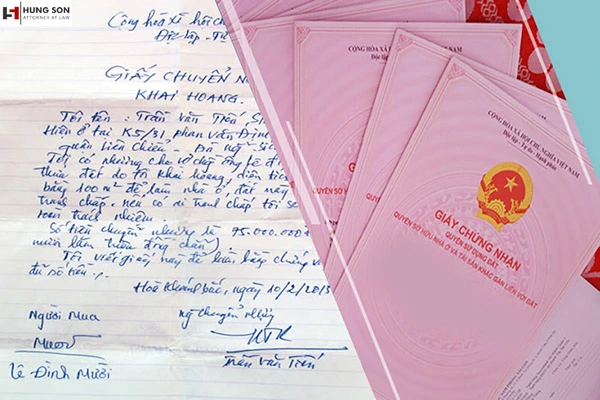 HUNG SON
ATTORNEY AT LAW
Cộng hòa xã hội ch
Độc lập - Tự
GIẤY CHUYỂN N
KHAI HOANG.
Tôi tên : Trần Văn Tiến, S
Hiện ở tại K5/31, phan Văn Định
quận Liên Chiểu
Tôi có nhường cho vợ chồng ông
thửa đất do tôi khai hoang, diện tích
bằng 100 m² để làm nhà ở, đất này
tranh chấp, nếu có ai tranh chấp tôi
toàn trách nhiệm.
Số tiền chuyển nhượng là 75.000.000
mươi lăm triệu đồng chẵn).
Tôi viết giấy này để làm bằng chứng và
đủ số tiền./.
Hoà Khánh bắc, ngày 10/2/2013
Người Mua
ng chuyển nhượng
Mười
Lê Đình Mười
Trần Văn Tiến
CỘNG HÒA XÃ HỘI CHỦ NGHĨA VIỆT NAM
Độc lập
CỘNG HÒA XÃ HỘI CHỦ NGHĨA VIỆT NAM
Độc lập - Tự do - Hạnh phúc
GIẤY CHỨNG NHẬN
QUYỀN SỬ DỤNG ĐẤT
QUYỀN SỞ HỮU NHÀ Ở VÀ TÀI SẢN KHÁC GẮN LIỀN VỚI ĐẤT